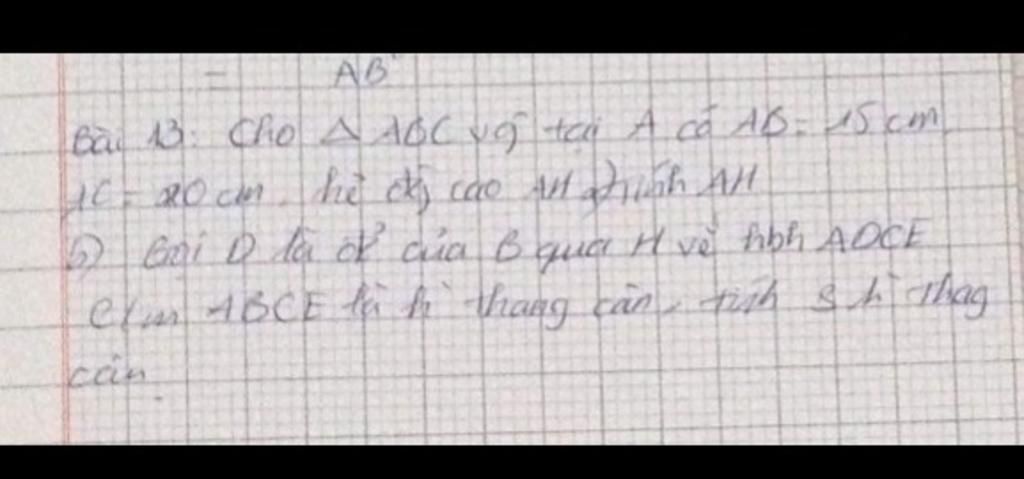 = AB
Bài 13: Cho Δ ABC vg tại A có AB = 15 cm
AC = 20 cm. kẻ đg cao AH tính AH
b) Gọi D là đx của B qua H vẽ hbh ADCE
c/m ABCE là h thang cân. tính S h thag
cân